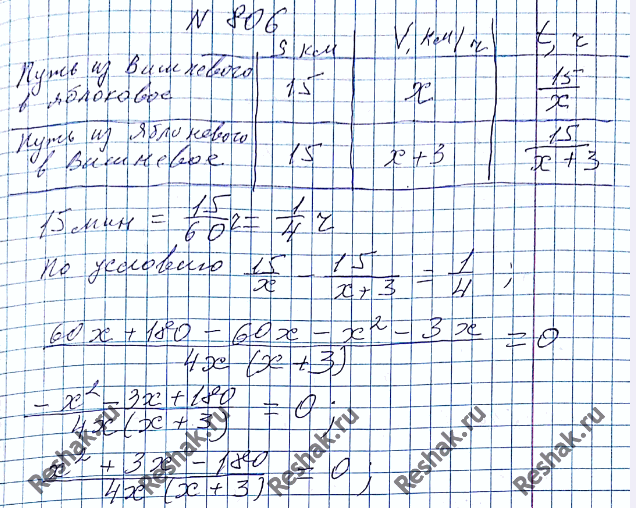 N 806
S км V, км/ч t, ч
Путь из Вишневого в яблоковое 15 x 15/x
Путь из Яблоневого в Вишневое 15 x+3 15/(x+3)
15 мин = 15/60 ч = 1/4 ч
по условию 15/x - 15/(x+3) = 1/4 ;
(60x + 180 - 60x - x² - 3x)/(4x(x+3)) = 0
(-x² - 3x + 180)/(4x(x+3)) = 0 ;
(x² + 3x - 180)/(4x(x+3)) = 0 ;
Reshak.ru Reshak.ru Reshak.ru Reshak.ru Reshak.ru